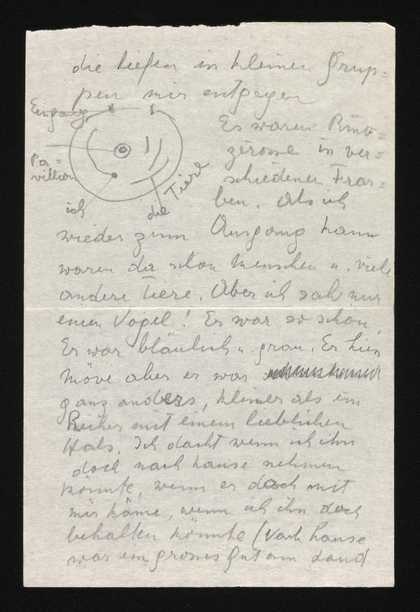 die liefen in kleinen Grup=
pen mir entgegen
Eingang
Pa=
villion
ich
die Tiere
Es waren Rino=
zerosse in ver=
schiedenen Far=
ben. Als ich
wieder zum Ausgang kam
waren da schon Menschen u. viele
andere Tiere. Aber ich sah nur
einen Vogel! Er war so schön,
Er war bläulich u. grau. Er hies
Möve aber er war
ganz anders, kleiner als ein
Reiher mit einem lieblichen
Hals. Ich dacht wenn ich ihn
doch nach hause nehmen
könnte, wenn er doch mit
mir käme, wenn ich ihn doch
behalten könnte (nach hause
war ein grosses Gut am Land